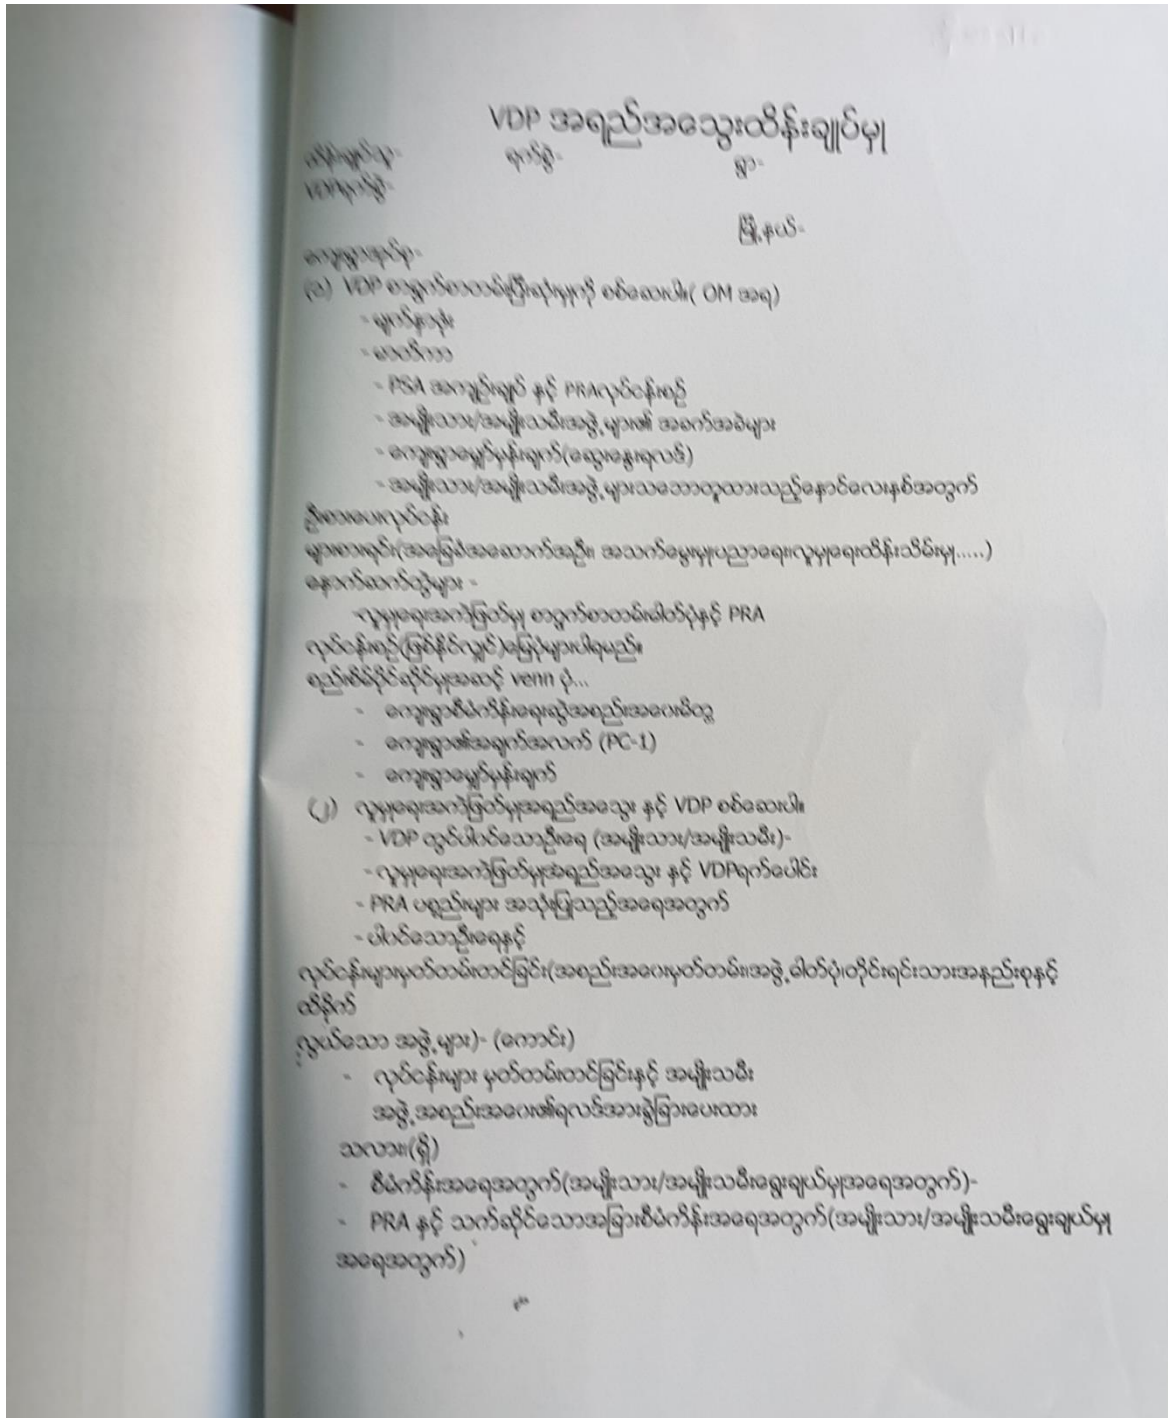 VDP အရည်အသွေးထိန်းချုပ်မှု
ထိန်းချုပ်သူ- ရက်စွဲ- ရွာ-
VDPရက်စွဲ-
မြို့နယ်-
ကျေးရွာအုပ်စု-
(၁) VDP စာရွက်စာတမ်းပြီးဆုံးမှုကို စစ်ဆေးပါ။( OM အရ)
- မျက်နှာဖုံး
- မာတိကာ
- PSA အကျဉ်းချုပ် နှင့် PRAလုပ်ငန်းစဉ်
- အမျိုးသား/အမျိုးသမီးအဖွဲ့များ၏ အခက်အခဲများ
- ကျေးရွာမျှော်မှန်းချက်(ဆွေးနွေးရလဒ်)
- အမျိုးသား/အမျိုးသမီးအဖွဲ့များသဘောတူထားသည့်နောင်လေးနှစ်အတွက်
ဦးစားပေးလုပ်ငန်း
များစာရင်း(အခြေခံအဆောက်အဦး၊ အသက်မွေးမှု၊ပညာရေး၊လူမှုရေးထိန်းသိမ်းမှု.....)
နောက်ဆက်တွဲများ -
-လူမှုရေးအကဲဖြတ်မှု စာရွက်စာတမ်းဓါတ်ပုံနှင့် PRA
လုပ်ငန်းစဉ်(ဖြစ်နိုင်လျှင်)မြေပုံများပါရမည်။
စည်းစိမ်ပိုင်ဆိုင်မှုအဆင့် venn ပုံ...
- ကျေးရွာစီမံကိန်းရေးဆွဲအစည်းအဝေးမိတ္တူ
- ကျေးရွာ၏အချက်အလက် (PC-1)
- ကျေးရွာမျှော်မှန်းချက်
(၂) လူမှုရေးအကဲဖြတ်မှုအရည်အသွေး နှင့် VDP စစ်ဆေးပါ။
- VDP တွင်ပါဝင်သောဦးရေ (အမျိုးသား/အမျိုးသမီး)-
- လူမှုရေးအကဲဖြတ်မှုအရည်အသွေး နှင့် VDPရက်ပေါင်း
- PRA ပစ္စည်းများ အသုံးပြုသည့်အရေအတွက်
- ပါဝင်သောဦးရေနှင့်
လုပ်ငန်းများမှတ်တမ်းတင်ခြင်း(အစည်းအဝေးမှတ်တမ်း၊အဖွဲ့ဓါတ်ပုံ၊တိုင်းရင်းသားအနည်းစုနှင့်
ထိခိုက်
လွယ်သော အဖွဲ့များ)- (ကောင်း)
- လုပ်ငန်းများ မှတ်တမ်းတင်ခြင်းနှင့် အမျိုးသမီး
အဖွဲ့အစည်းအဝေး၏ရလဒ်အားခွဲခြားပေးထား
သလား၊(ရှိ)
- စီမံကိန်းအရေအတွက်(အမျိုးသား/အမျိုးသမီးရွေးချယ်မှုအရေအတွက်)-
- PRA နှင့် သက်ဆိုင်သောအခြားစီမံကိန်းအရေအတွက်(အမျိုးသား/အမျိုးသမီးရွေးချယ်မှု
အရေအတွက်)